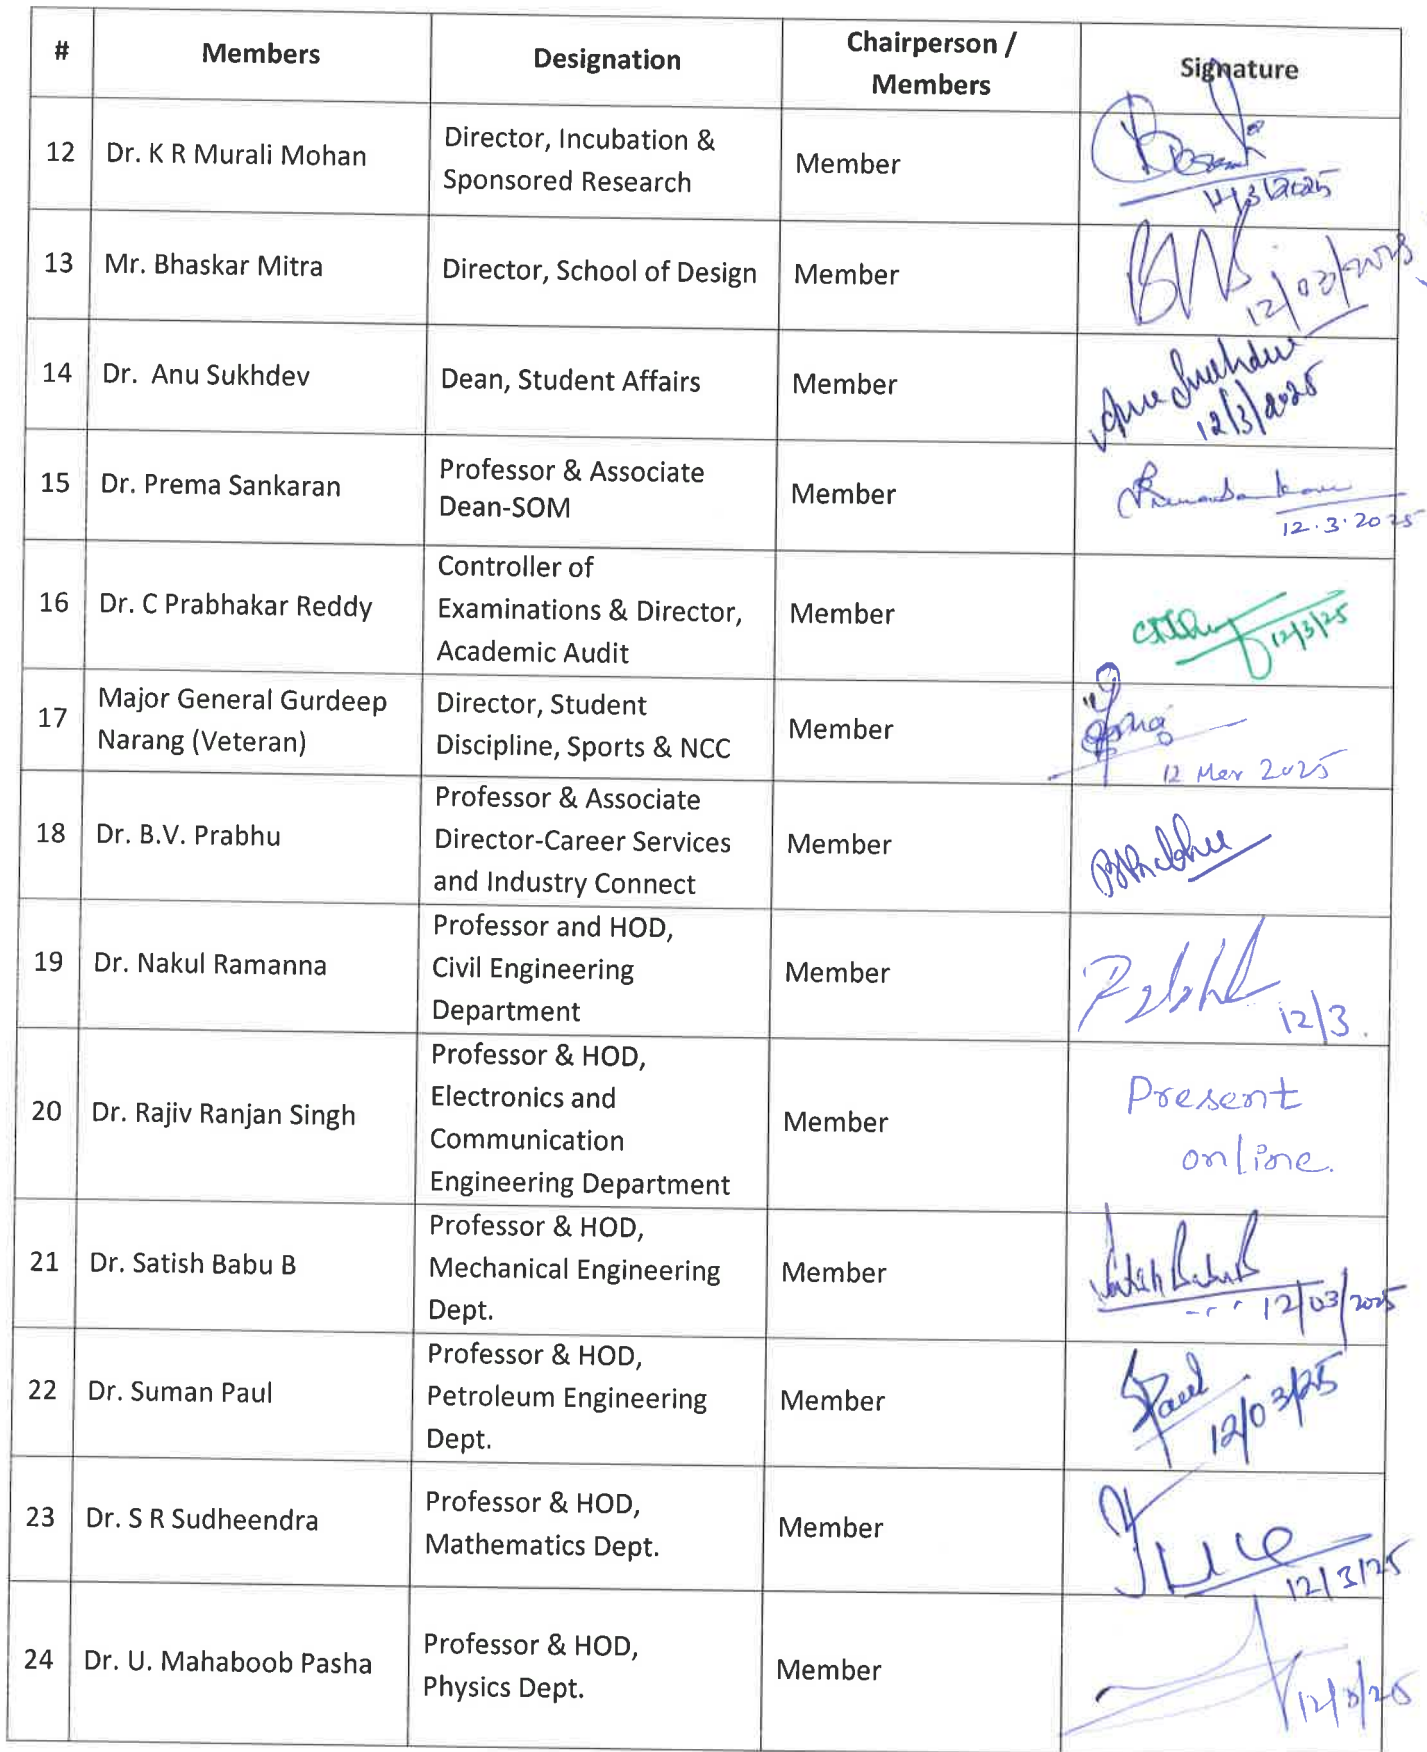 # Members Designation Chairperson / Members Signature
12 Dr. K R Murali Mohan Director, Incubation & Sponsored Research Member
12/3/2025
13 Mr. Bhaskar Mitra Director, School of Design Member
12/03/2025
14 Dr. Anu Sukhdev Dean, Student Affairs Member Anu Sukhdev
12/3/2025
15 Dr. Prema Sankaran Professor & Associate Dean-SOM Member
12.3.2025
16 Dr. C Prabhakar Reddy Controller of Examinations & Director, Academic Audit Member
12/3/25
17 Major General Gurdeep Narang (Veteran) Director, Student Discipline, Sports & NCC Member
12 Mar 2025
18 Dr. B.V. Prabhu Professor & Associate Director-Career Services and Industry Connect Member BVPrabhu
19 Dr. Nakul Ramanna Professor and HOD, Civil Engineering Department Member
12/3.
20 Dr. Rajiv Ranjan Singh Professor & HOD, Electronics and Communication Engineering Department Member Present online.
21 Dr. Satish Babu B Professor & HOD, Mechanical Engineering Dept. Member Satish Babu B
12/03/2025
22 Dr. Suman Paul Professor & HOD, Petroleum Engineering Dept. Member SPaul
12/03/25
23 Dr. S R Sudheendra Professor & HOD, Mathematics Dept. Member
12/3/25
24 Dr. U. Mahaboob Pasha Professor & HOD, Physics Dept. Member
12/3/25